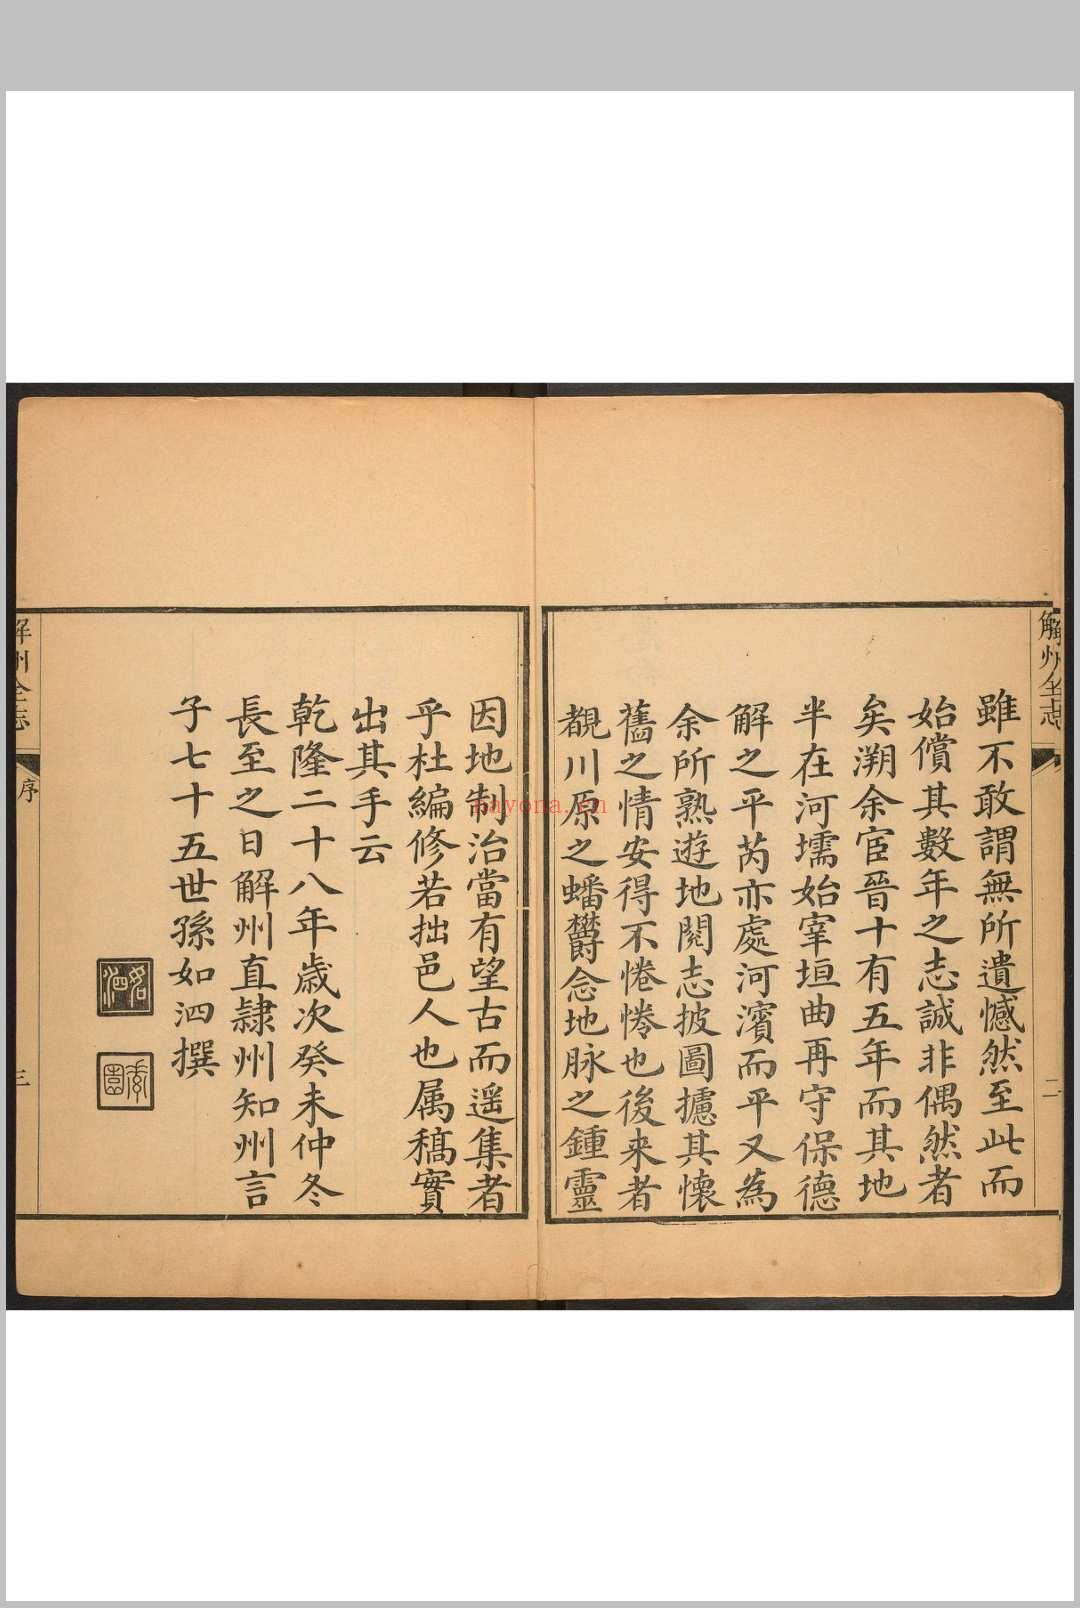 解州全志
二
雖不敢謂無所遺憾然至此而
始償其數年之志誠非偶然者
矣溯余宦晉十有五年而其地
半在河壖始宰垣曲再守保德
解之平芮亦處河濱而平又為
余所熟遊地閱志披圖攄其懷
舊之情安得不惓惓也後来者
覩川原之蟠欝念地脉之鍾靈
因地制治當有望古而遥集者
乎杜編修若拙邑人也属稿實
出其手云
乾隆二十八年歲次癸未仲冬
長至之日解州直隷州知州言
子七十五世孫如泗撰
如泗
素園
解州全志
序
三